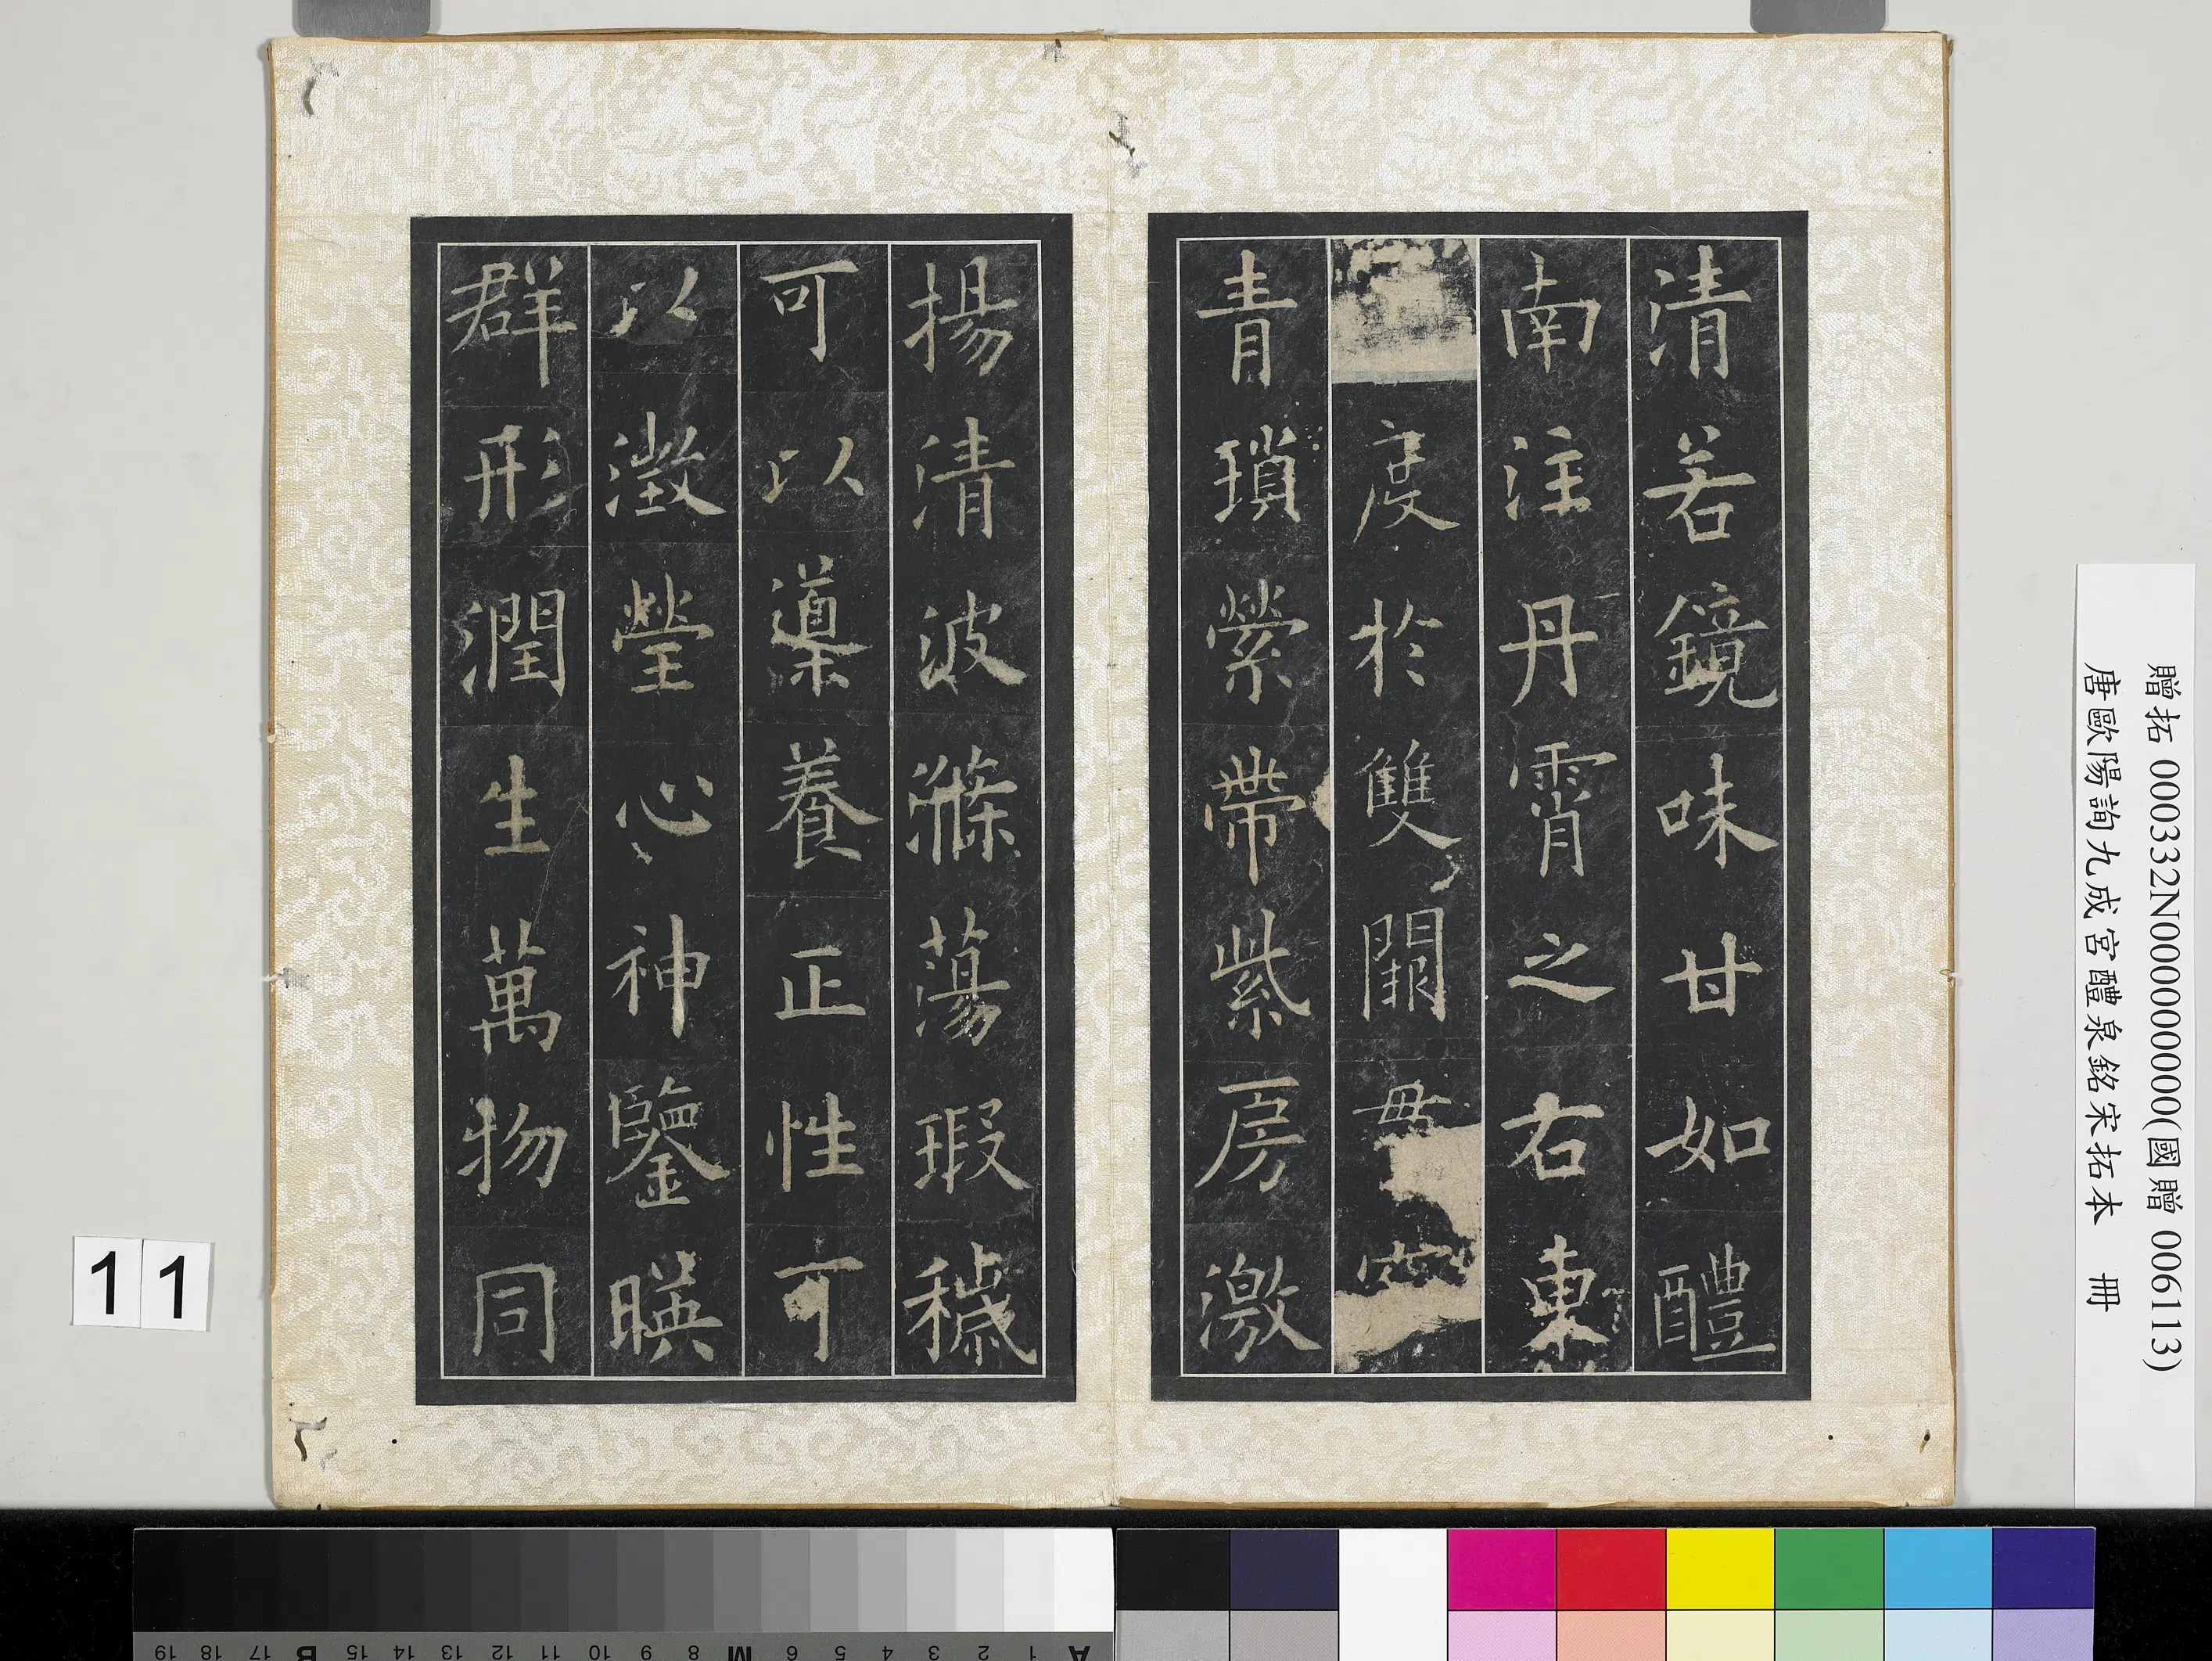 清若鏡味甘如醴
南注丹霄之右東
度於雙闕毋穿
青瑣縈帶紫房激
揚清波滌蕩瑕穢
可以導養正性可
以澂瑩心神鑒暎
群形潤生萬物同
贈拓 000332N000000000(國贈 006113)
唐歐陽詢九成宮醴泉銘宋拓本 冊
11
A 1 2 3 4 5 6 7 8 M 9 10 11 12 13 14 15 B 17 18 19